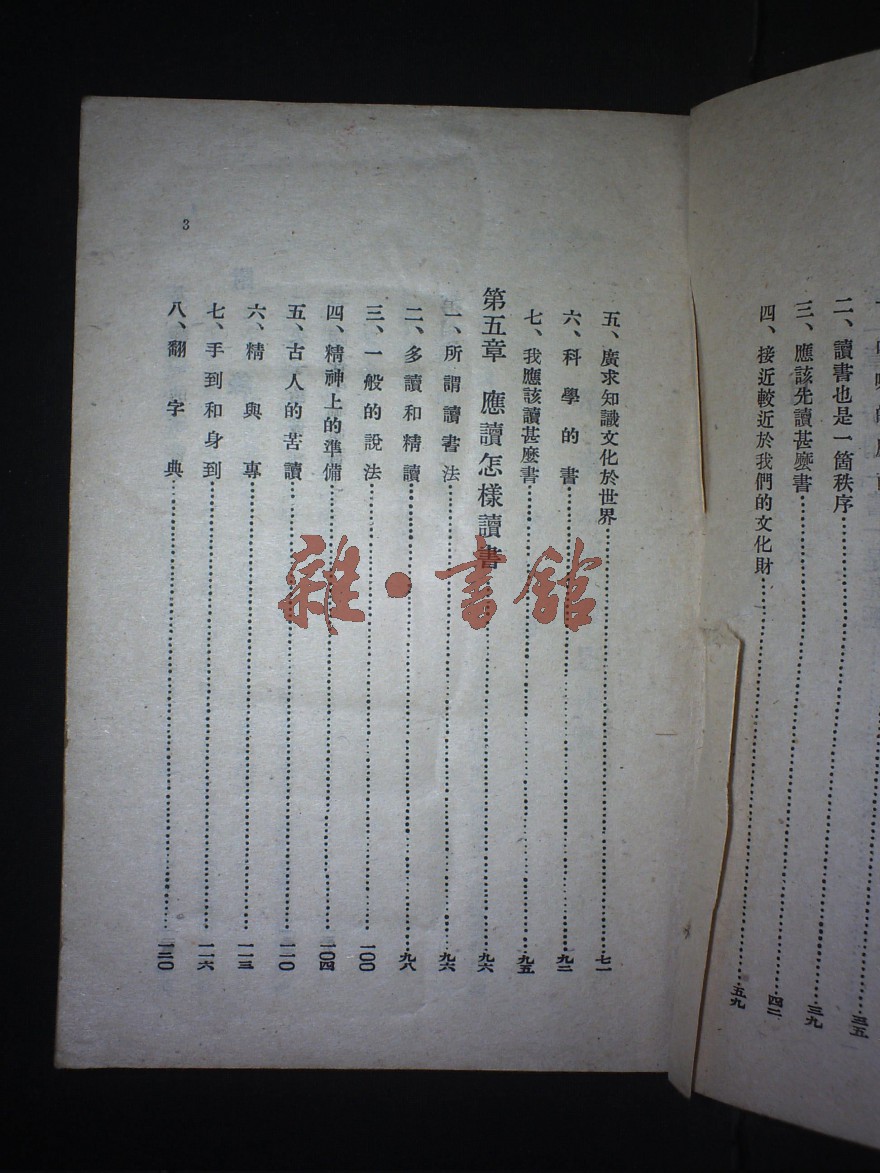 二、讀書也是一箇秩序……三五
三、應該先讀甚麽書……三九
四、接近較近於我們的文化財……四二
五九
五、廣求知識文化於世界……七一
六、科學的書……九二
七、我應該讀甚麽書……九五
第五章 應讀怎樣讀書……九六
一、所謂讀書法……九六
二、多讀和精讀……九八
三、一般的說法……一〇〇
四、精神上的準備……一〇四
五、古人的苦讀……一一〇
六、精與專……一一三
七、手到和身到……一一六
八、翻字典……一二〇
3
雜·書館